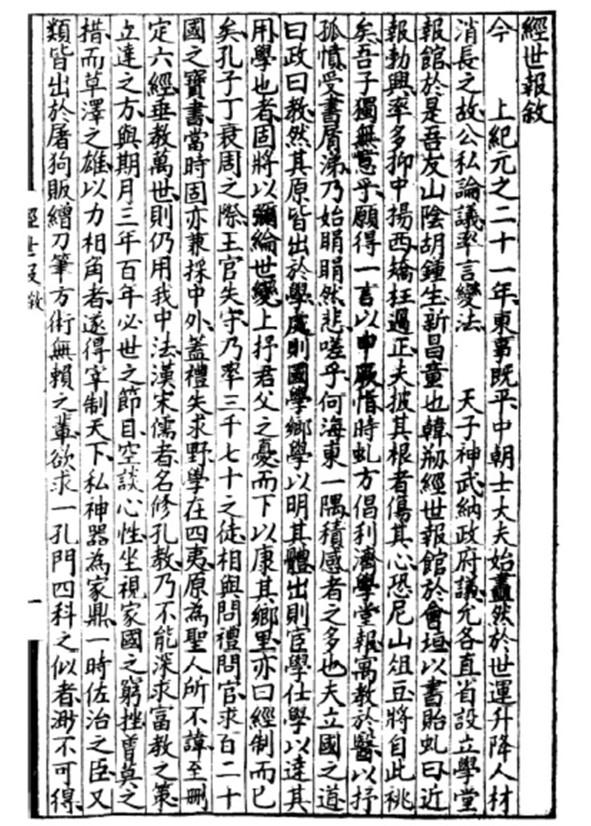 經世報敘
今 上紀元之二十一年東事既平中朝士大夫始衋然於世運升降人材
消長之故公私論議率言變法 天子神武納政府議允各直省設立學堂
報館於是吾友山陰胡鍾生新昌童也韓剏經世報館於會垣以書貽虬曰近
報勃興率多抑中揚西矯枉過正夫披其根者傷其心恐尼山俎豆將自此祧
矣吾子獨無乎願得一言以申厥恉時虬方倡利濟學堂報寓教於醫以抒
孤憤受書屑涕乃始睊睊然悲嗟乎何海東一隅積感者之多也夫立國之道
曰政曰教然其原皆出於學處則國學鄉學以明其體出則宦學仕學以達其
用學也者固將以彌綸世變上抒君父之憂而下以康其鄉里亦曰經制而已
矣孔子丁衰周之際王官失守乃率三千七十之徒相與問禮問官求百二十
國之寶書當時固亦兼採中外蓋禮失求野學在四夷原為聖人所不諱至刪
定六經垂教萬世則仍用我中法漢宋儒者名修孔教乃不能深求富教之策
立達之方與期月三年百年必世之節目空談心性坐視家國之窮挫曾莫之
措而草澤之雄以力相角者遂得宰制天下私神器為家鼎一時佐治之臣又
類皆出於屠狗販繒刀筆方術無賴之輩欲求一孔門四科之似者渺不可得
經世報敘
一